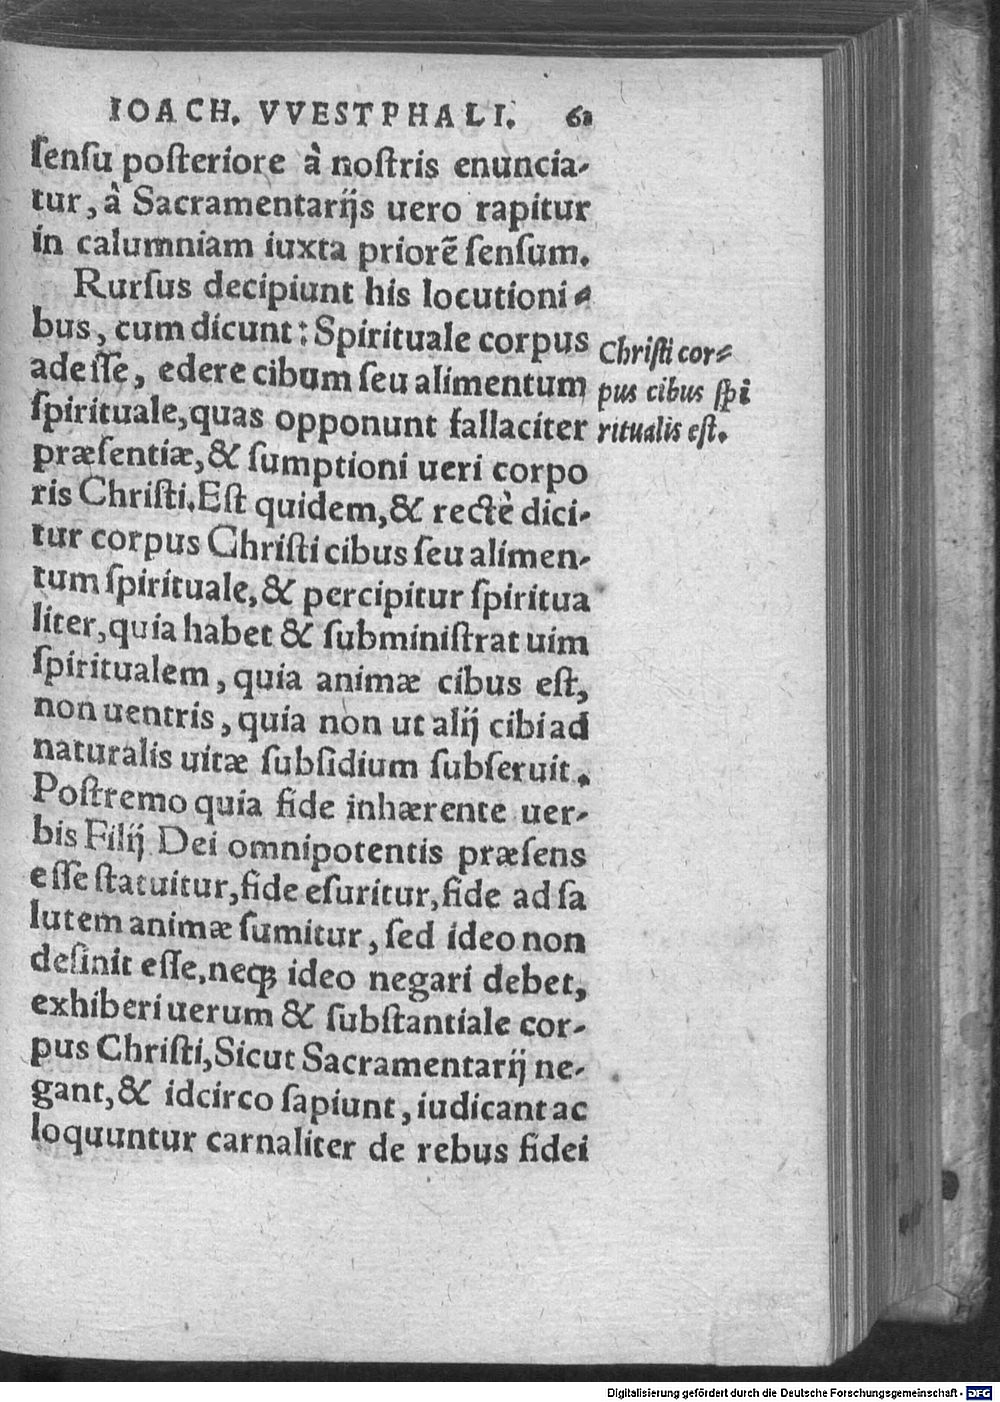 IOACH. VVESTPHALI. 61
ſenſu poſteriore à noſtris enuncia-
tur, à Sacramentarijs uero rapitur
in calumniam iuxta priorē ſenſum.
Rurſus decipiunt his locutioni-
bus, cum dicunt: Spirituale corpus
adeſſe, edere cibum ſeu alimentum
ſpirituale, quas opponunt fallaciter
præſentiæ, & ſumptioni ueri corpo
ris Chriſti. Eſt quidem, & rectè dici-
tur corpus Chriſti cibus ſeu alimen-
tum ſpirituale, & percipitur ſpiritua
liter, quia habet & ſubminiſtrat uim
ſpiritualem, quia animæ cibus eſt,
non uentris, quia non ut alij cibi ad
naturalis uitæ ſubſidium ſubſeruit.
Poſtremo quia fide inhærente uer-
bis Filij Dei omnipotentis præſens
eſſe ſtatuitur, fide eſuritur, fide ad ſa
lutem animæ ſumitur, ſed ideo non
deſinit eſſe, neqꝫ ideo negari debet,
exhiberi uerum & ſubſtantiale cor-
pus Chriſti, Sicut Sacramentarij ne-
gant, & idcirco ſapiunt, iudicant ac
loquuntur carnaliter de rebus fidei
Chriſti cor-
pus cibus ſpi
ritualis eſt.
Digitalisierung gefördert durch die Deutsche Forschungsgemeinschaft - DFG